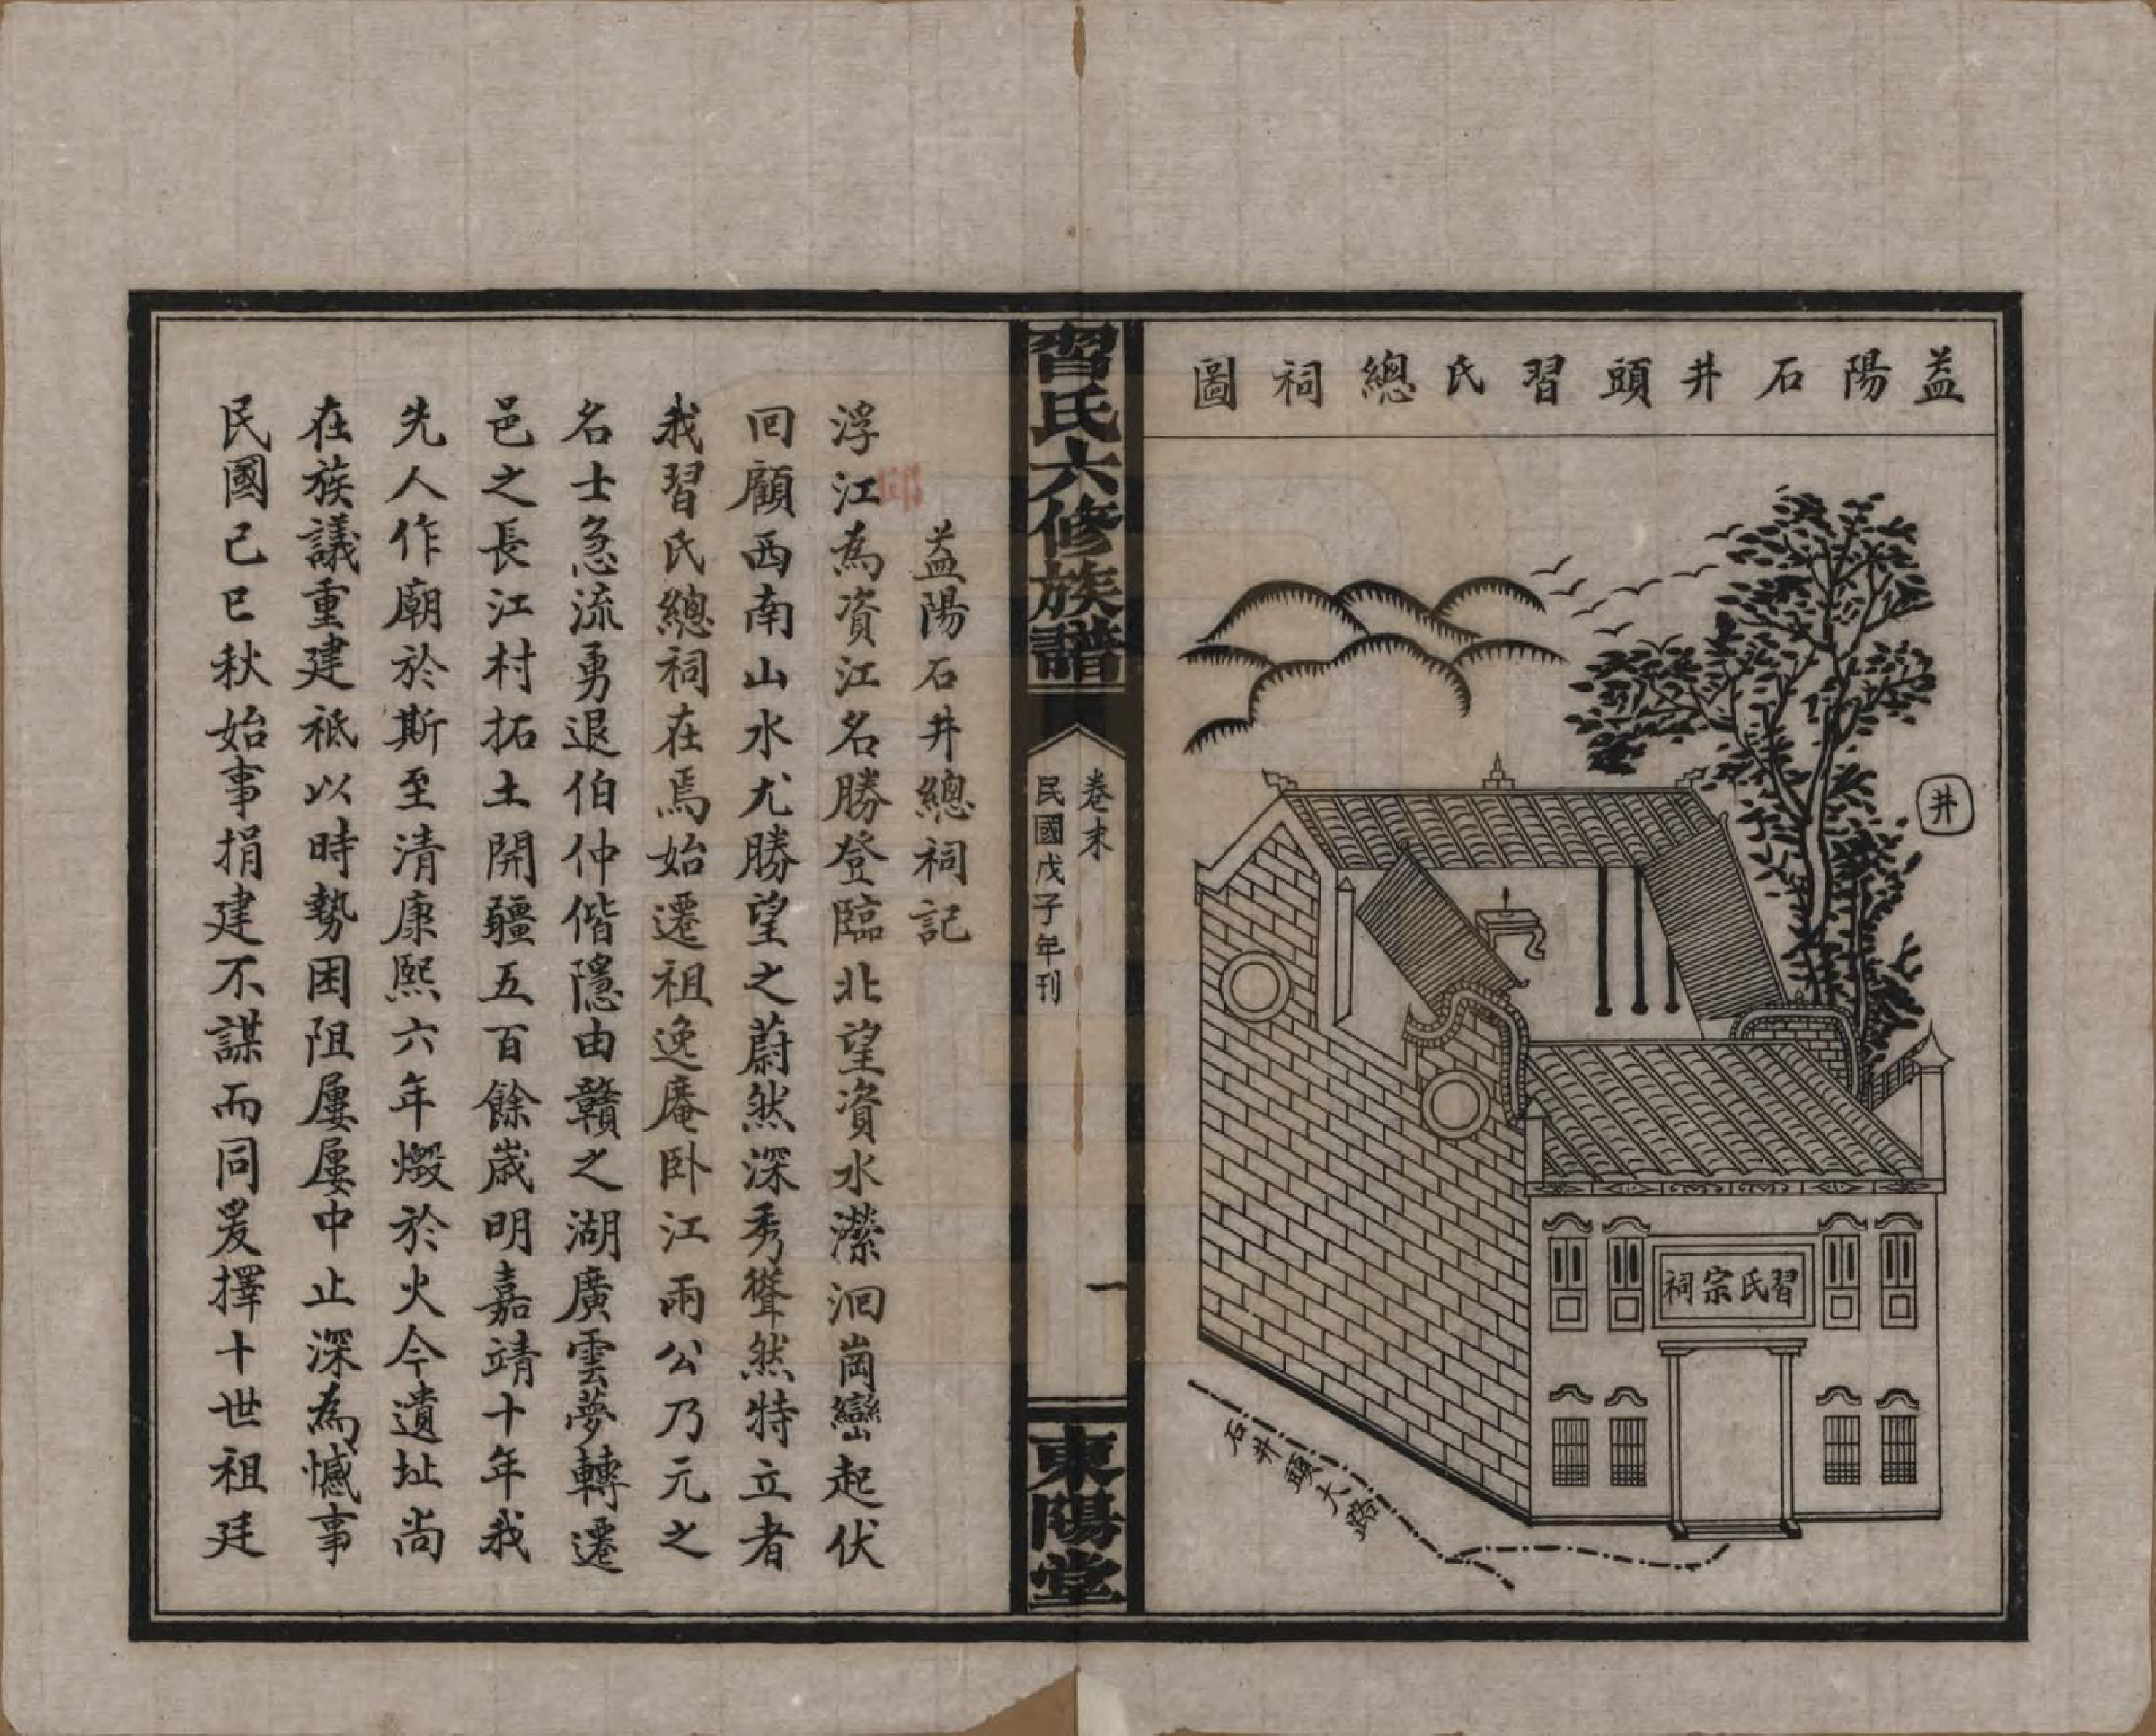 益陽石井頭習氏總祠圖
井
習氏宗祠
石井頭大路
習氏六修族譜
卷末
民國戊子年刊
一
東陽堂
益陽石井總祠記
浮江為資江名勝登臨北望資水濴洄崗巒起伏
回顧西南山水尤勝望之蔚然深秀聳然特立者
我習氏總祠在焉始遷祖逸庵卧江兩公乃元之
名士急流勇退伯仲偕隱由贛之湖廣雲夢轉遷
邑之長江村拓土開疆五百餘歲明嘉靖十年我
先人作廟於斯至清康熙六年燬於火今遺址尚
在族議重建祗以時勢困阻屢屢中止深為憾事
民國己巳秋始事捐建不謀而同爰擇十世祖廷